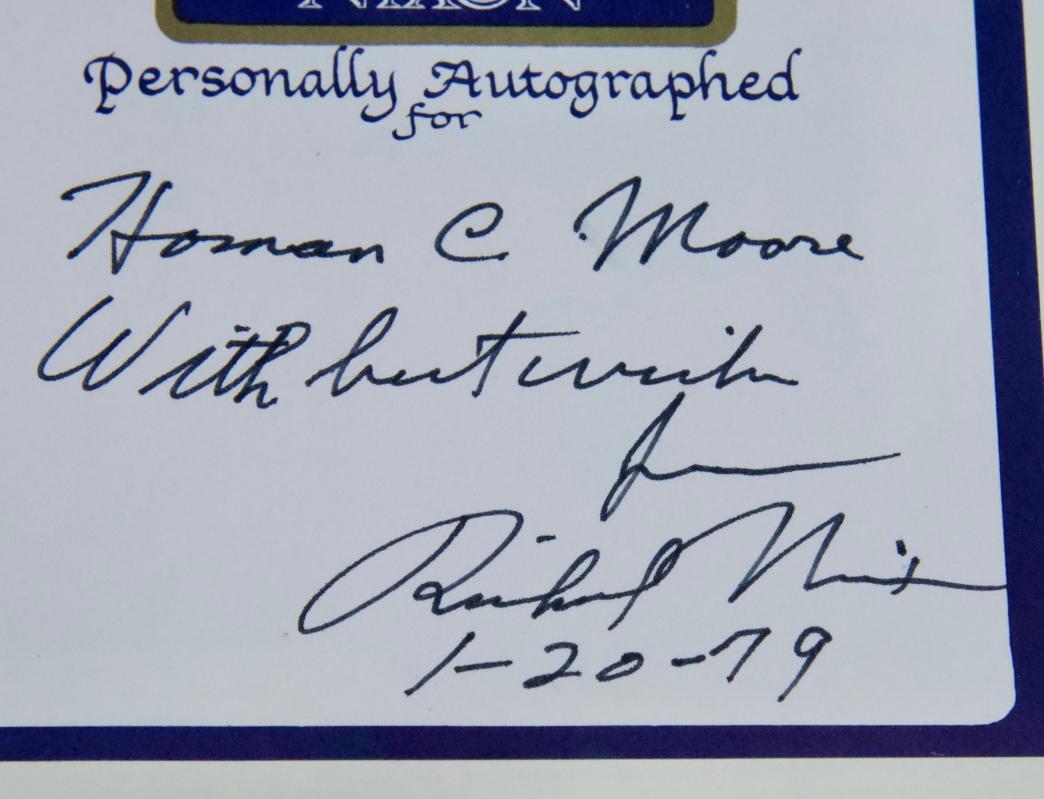 NIXON
Personally Autographed
for
Homan C Moore
With best wishes
from
Richard Nixon
1-20-79